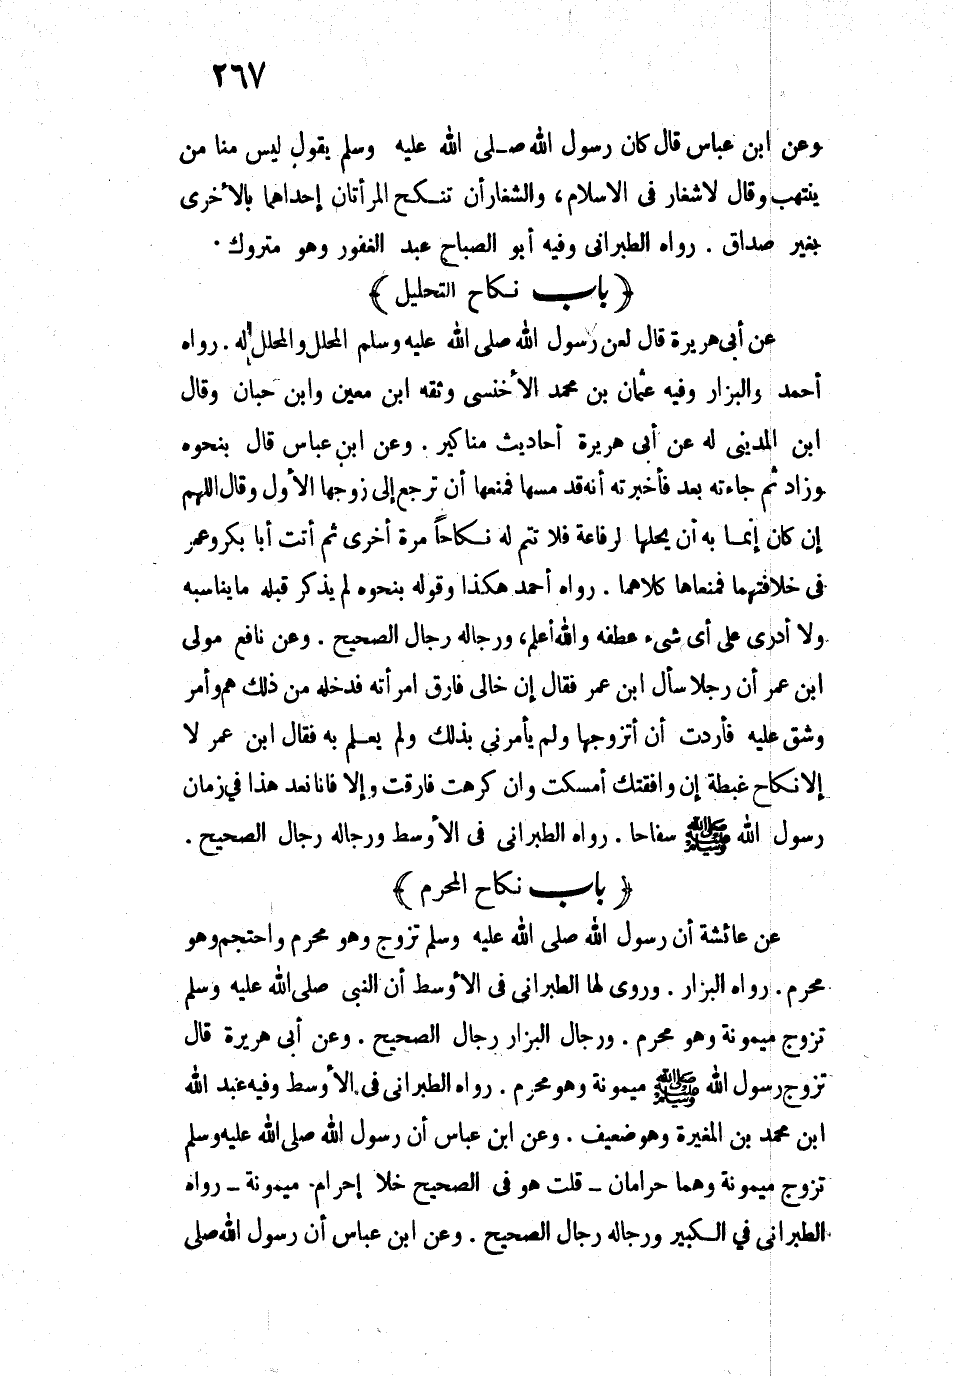 ٢٦٧
وعن ابن عباس قال كان رسول الله صلى الله عليه وسلم يقول ليس منا من
ينتهب وقال لاشغار فى الاسلام، والشغارأن تنكح المرأتان إحداهما بالأخرى
بغير صداق . رواه الطبرانى وفيه أبو الصباح عبد الغفور وهو متروك .
﴿ باب نكاح التحليل ﴾
عن أبى هريرة قال لعن رسول الله صلى الله عليه وسلم المحلل والمحلل له . رواه
أحمد والبزار وفيه عثمان بن محمد الأخنسى وثقه ابن معين وابن حبان وقال
ابن المدينى له عن أبى هريرة أحاديث مناكير . وعن ابن عباس قال بنحوه
وزاد ثم جاءته بعد فأخبرته أنه قد مسها فمنعها أن ترجع إلى زوجها الأول وقال اللهم
إن كان إنما به أن يحلها لرفاعة فلا تتم له نكاحاً مرة أخرى ثم أتت أبا بكر وعمر
فى خلافتهما فمنعاها كلاهما . رواه أحمد هكذا وقوله بنحوه لم يذكر قبله مايناسبه
ولا أدرى على أى شىء عطفه والله أعلم، ورجاله رجال الصحيح . وعن نافع مولى
ابن عمر أن رجلا سأل ابن عمر فقال إن خالى فارق امرأته فدخله من ذلك هم وأمر
وشق عليه فأردت أن أتزوجها ولم يأمرني بذلك ولم يعلم به فقال ابن عمر لا
إلا نكاح غبطة إن وافقتك أمسكت وان كرهت فارقت وإلا فانا نعد هذا في زمان
رسول الله ﷺ سفاحا . رواه الطبرانى فى الأوسط ورجاله رجال الصحيح .
﴿ باب نكاح المحرم ﴾
عن عائشة أن رسول الله صلى الله عليه وسلم تزوج وهو محرم واحتجم وهو
محرم . رواه البزار . وروى لها الطبرانى فى الأوسط أن النبى صلى الله عليه وسلم
تزوج ميمونة وهو محرم . ورجال البزار رجال الصحيح . وعن أبى هريرة قال
تزوج رسول الله ﷺ ميمونة وهو محرم . رواه الطبرانى فى الأوسط وفيه عبد الله
ابن محمد بن المغيرة وهو ضعيف . وعن ابن عباس أن رسول الله صلى الله عليه وسلم
تزوج ميمونة وهما حرامان ـ قلت هو فى الصحيح خلا إحرام ميمونة ـ رواه
الطبرانى في الكبير ورجاله رجال الصحيح . وعن ابن عباس أن رسول الله صلى